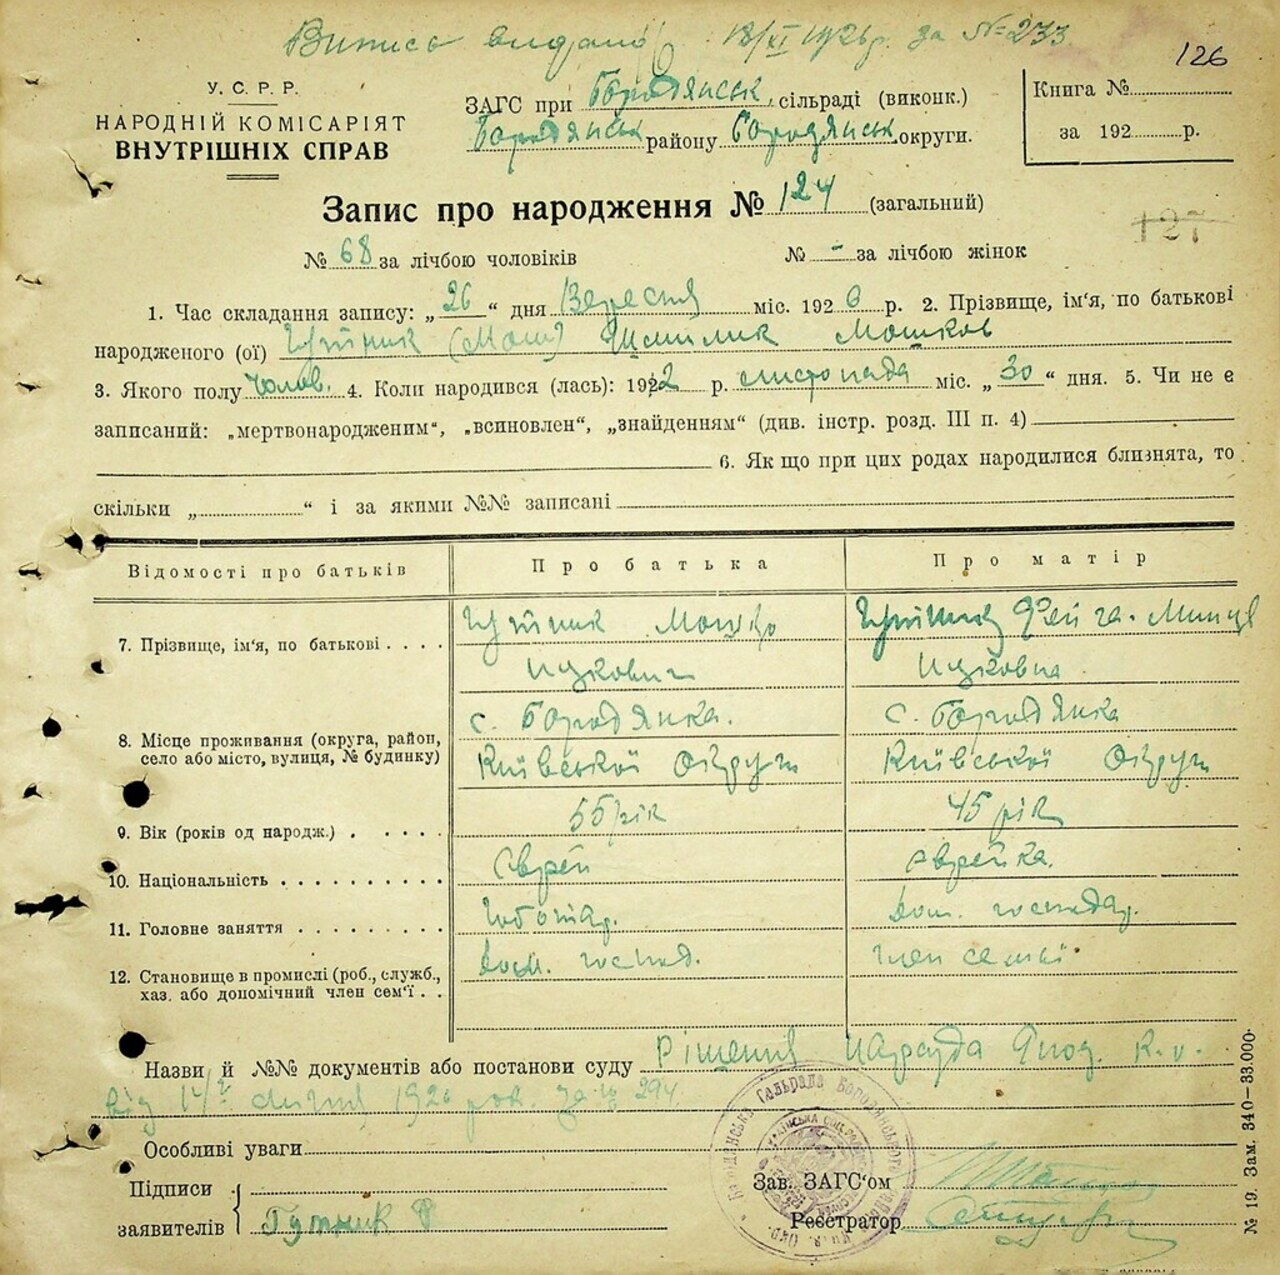 Випись видано 18/XI 1926 р. за №233
126
У. С. Р. Р.
НАРОДНІЙ КОМІСАРІЯТ
ВНУТРІШНІХ СПРАВ
ЗАГС при Бородянськ, сільраді (виконк.)
Бородянськ району Бородянськ округи.
Книга №
за 192 р.
Запис про народження № 124 (загальний)
127
№ 68 за лічбою чоловіків № - за лічбою жінок
1. Час складання запису: „ 26 “ дня Вересня міс. 192 6 р. 2. Прізвище, ім'я, по батькові
народженого (ої) (Мош) Шмилик Мошков
3. Якого полу Чолов. 4. Коли народився (лась): 1922 р. листопада міс. „ 30 “ дня. 5. Чи не є
записаний: „мертвонародженим“, „всиновлен“, „знайденням“ (див. інстр. розд. III п. 4)
6. Як що при цих родах народилися близнята, то
скільки „ “ і за якими №№ записані
Відомості про батьків Про батька Про матір
7. Прізвище, ім'я, по батькові Мошко Фейга-Минця
Ицкович Ицковна
8. Місце проживання (округа, район, село або місто, вулиця, № будинку) с. Бородянка. с. Бородянка
Київської Округи Київської Округи
9. Вік (років од народж.) 55 рік 45 рік
10. Національність Єврей єврейка.
11. Головне заняття Чоботар. дом. господар.
12. Становище в промислі (роб., служб., хаз. або допомічний член сем'ї дом. господ. член семьї
Назви й №№ документів або постанови суду Рішення Нарсуда
від 14го 1926 рок. за № 294.
Особливі уваги
Підписи
заявителів Гутник Ф
Зав. ЗАГС'ом
Реєстратор
№ 19. Зам. 340—33.000.